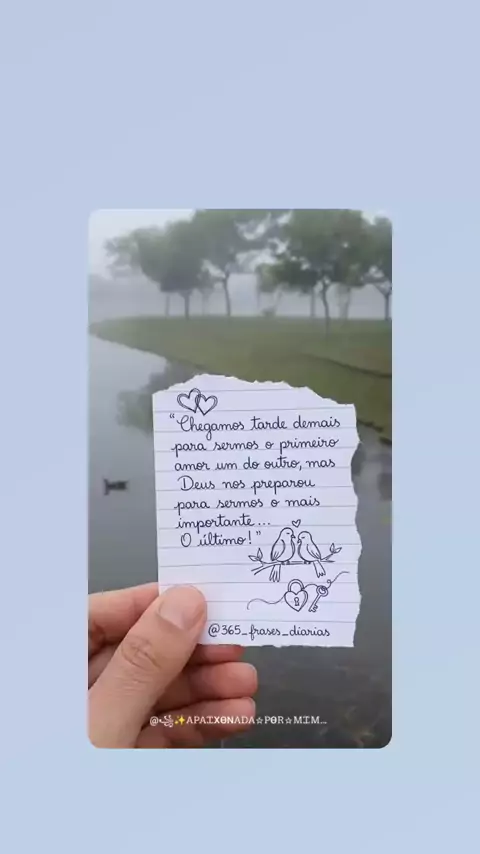 “Chegamos tarde demais
para sermos o primeiro
amor um do outro, mas
Deus nos preparou
para sermos o mais
importante...
O último!”
@365_frases_diarias
@꧁✨ΑPΑꞮXϴNΛDΑ☆PϴR☆MꞮM...